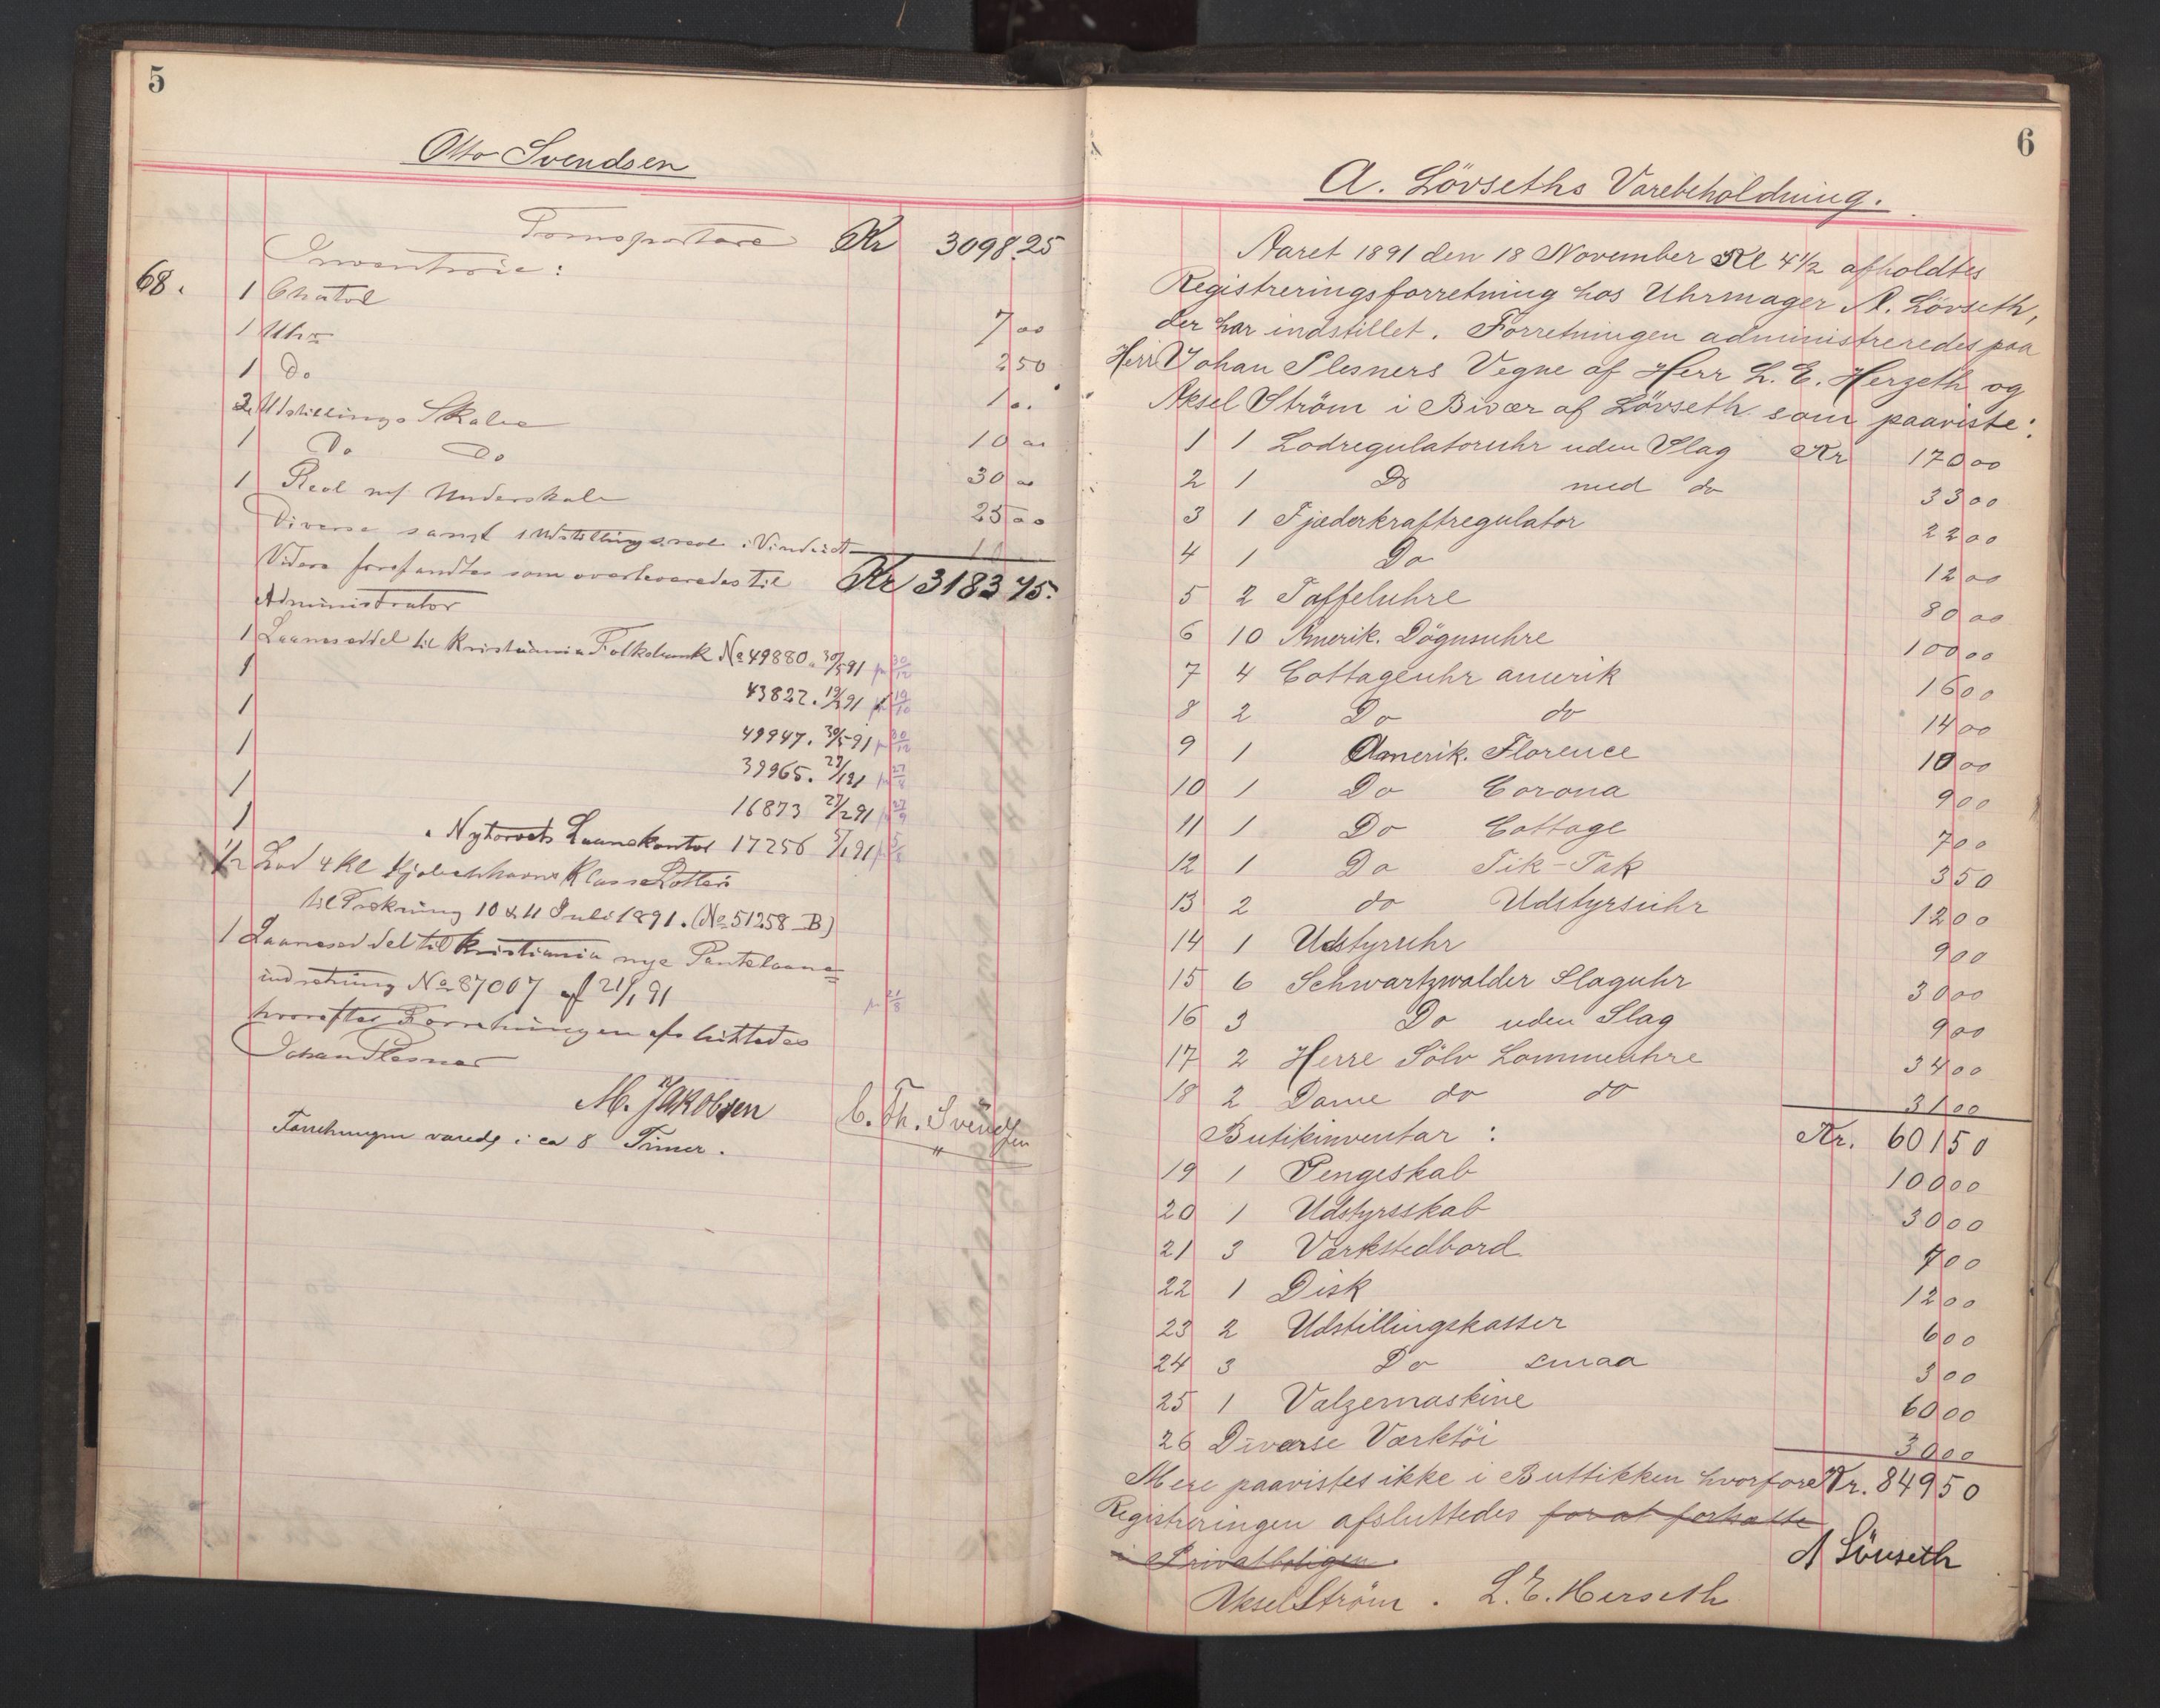 5
Otto Svendsen
Transportere Kr 3098.25
Inventarie:
68. 1 Chatol 7 00
1 Uhr 2 50
1 Do 1 0.
2 Udstillings Skabe 10 00
1 Do Do 30 00
1 Reol m/ Underskabe 25 00
Diverse samt 1 Udstillingsreol i Vinduet
Videre forefandtes som overleveredes til Kr 3183 75.
Administrator
1 Laaneseddel til Kristiania Folkebank No 49880. 30/5 91 30/12
1 43822. 19/ 91 19/10
1 49947. 30/5 91 30/12
1 39965. 27/1 91 27/8
1 16873 27/2 91 27/9
1 " Nytorvets Laanekontor 17256 5/1 91 5/8
1/2 Lod 4 Kl Kjøbenhavns Klasse Lotteri
til Trækning 10 & 11 Juli 1891. (No 51258 B)
1 Laaneseddel til Kristiania nye Pantelaane=
indretning No 87007 af 21/1 91 21/8
hvorefter Forretningen afsluttedes
Johan Plesner
M. Jakobsen C. Th. Svendsen
Forretningen varede i ca 8 Timer.
6
A. Lövseths Varebeholdning.
Aaret 1891 den 18 November Kl 4 1/2 afholdtes
Registreringsforretning hos Uhrmager A. Lövseth,
der har indstillet. Forretningen administreredes paa
Herr Johan Plesners Vegne af Herr L. E. Herzeth og
Aksel Ström i Bivær af Lövseth som paaviste:
1 1 Lodregulatoruhr uden Slag Kr 170 00
2 1 Do med do 33 00
3 1 Fjæderkraftregulator 22 00
4 1 Do 12 00
5 2 Taffeluhre 80 00
6 10 Amerik. Dögnsuhre 100 00
7 4 Cottageuhr amerik 16 00
8 2 Do do 14 00
9 1 Amerik. Florence 10 00
10 1 Do Corona 9 00
11 1 Do Cottage 7 00
12 1 Do Tik-Tak 3 50
13 2 do Udstyrsuhr 12 00
14 1 Udstyruhr 9 00
15 6 Schwartzwalder Slaguhr 30 00
16 3 Do uden Slag 9 00
17 2 Herre Sölv Lommeuhre 34 00
18 2 Dame do do 31 00
Butikinventar: Kr. 601 50
19 1 Pengeskab 100 00
20 1 Udstyrsskab 30 00
21 3 Værkstedbord 7 00
22 1 Disk 12 00
23 2 Udstillingskasser 6 00
24 3 Do smaa 3 00
25 1 Valzemaskine 60 00
26 Diverse Værktöi 30 00
Mere paavistes ikke i Buttikken hvorfore Kr. 849 50
Registreringen afsluttedes for at fortsatte
i Privatboligen.
A Lövseth
Aksel Ström. L. E. Herseth